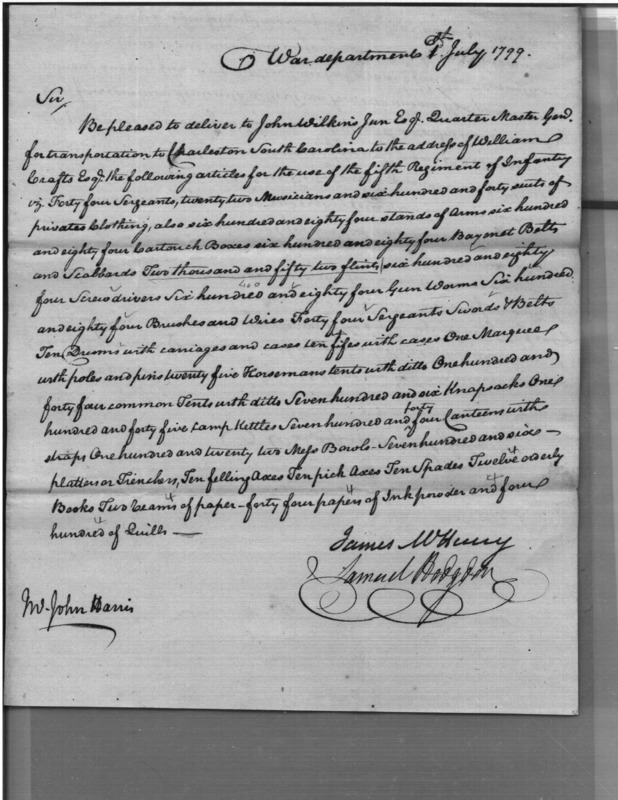 War department 1st July 1799.
Sir
Be pleased to deliver to John Wilkins Jun Esq. Quarter Master Genl.
for transportation to Charleston South Carolina to the address of William
Crafts Esq. the following articles for the use of the fifth Regiment of Infantry
viz Forty four Sergeants, twenty two Musicians and six hundred and forty suits of
privates Clothing, also six hundred and eighty four stands of Arms six hundred
and eighty four Cartouch Boxes six hundred and eighty four Bayonet Belts
and Scabbards Two thousand and fifty two flints, six hundred and eighty
four Screw drivers Six hundred and eighty four Gun Worms Six hundred
and eighty four Brushes and Wires Forty four Sergeants Swords & Belts
Ten Drums with carriages and cases ten fifes with cases One Marquee
with poles and pins twenty five Horsemans tents with ditto One hundred and
forty four common Tents with ditto Seven hundred and six Knapsacks One
hundred and forty five Camp Kettles Seven hundred and forty four Canteens with
straps One hundred and twenty two Mess Bowls - Seven hundred and six -
platters or Trenchers, Ten felling Axes Ten pick Axes Ten Spades Twelve orderly
Books Two reams of paper - forty four papers of Ink powder and four
hundred of Quills -
James McHenry
Samuel Hodgdon
Mr. John Harris